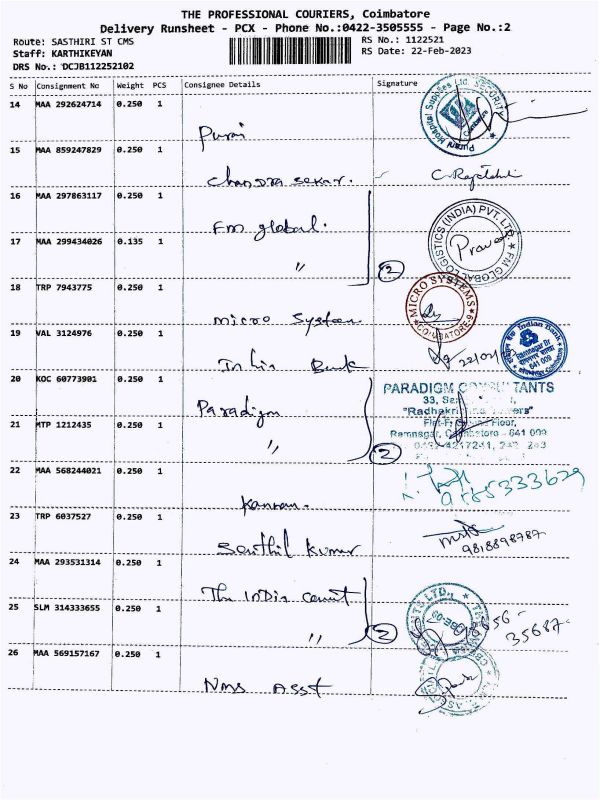 THE PROFESSIONAL COURIERS, Coimbatore
Delivery Runsheet - PCX - Phone No.:0422-3505555 - Page No.:2
Route: SASTHIRI ST CMS
RS No.: 1122521
Staff: KARTHIKEYAN
RS Date: 22-Feb-2023
DRS No.: DCJB112252102
S No Consignment No Weight PCS Consignee Details Signature
14 MAA 292624714 0.250 1
Purani Hospital Supplies Ltd. SECURITY
Coimbatore
15 MAA 859247829 0.250 1
Chandra sekar.
16 MAA 297863117 0.250 1
FM global.
FM GLOBAL LOGISTICS (INDIA) PVT. LTD
17 MAA 299434026 0.135 1
〃 2
18 TRP 7943775 0.250 1
micro System
MICRO SYSTEMS
COIMBATORE-9
19 VAL 3124976 0.250 1
Bank
Indian Bank
Ramnagar Br
641 009
20 KOC 60773901 0.250 1
Paradigm
PARADIGM CONSULTANTS
33,
"Radhakrishna Towers"
Floor,
Ramnagar, Coimbatore - 641 009
21 MTP 1212435 0.250 1
〃 2
22 MAA 568244021 0.250 1
Kannan.
23 TRP 6037527 0.250 1
Senthil Kumar
9818898787
24 MAA 293531314 0.250 1
The India
25 SLM 314333655 0.250 1
〃 2
35687
26 MAA 569157167 0.250 1
NMS Asst